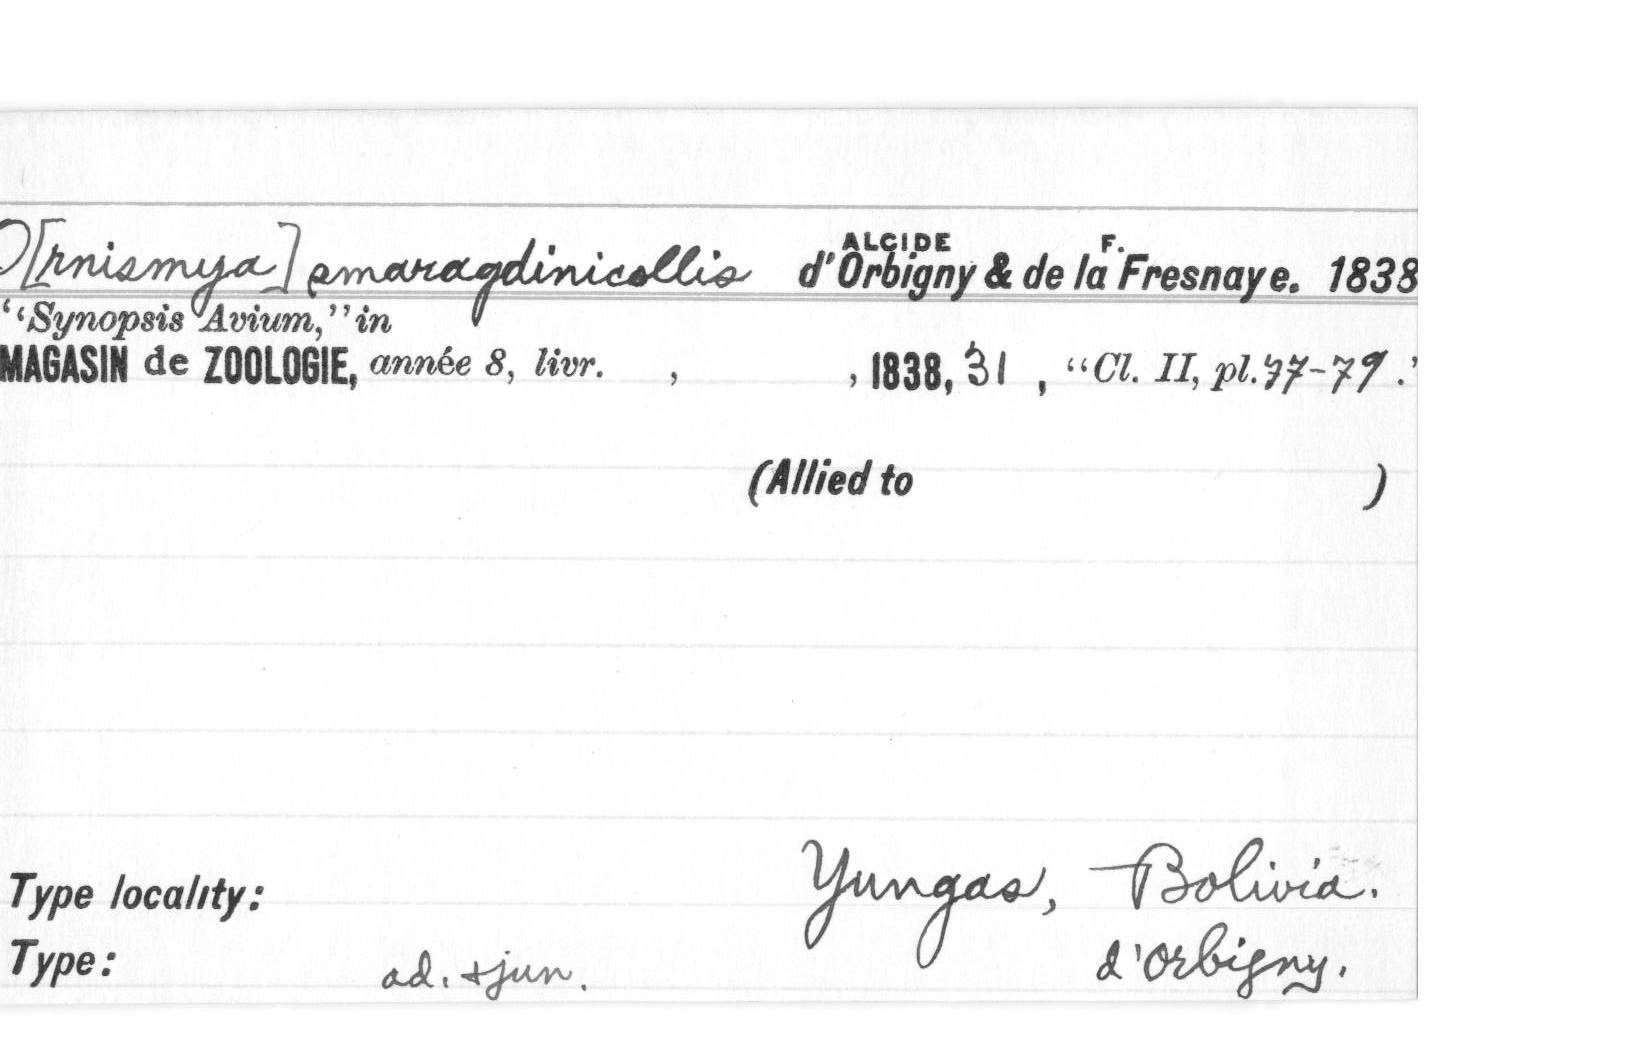 O[rnismya] smaragdinicollis d'Orbigny & de la Fresnaye. 1838
ALCIDE F.
"Synopsis Avium," in
MAGASIN de ZOOLOGIE, année 8, livr. , , 1838, 31 , "Cl. II, pl. 77-79."
(Allied to )
Type locality: Yungas, Bolivia.
Type: ad. & jun. d'Orbigny.